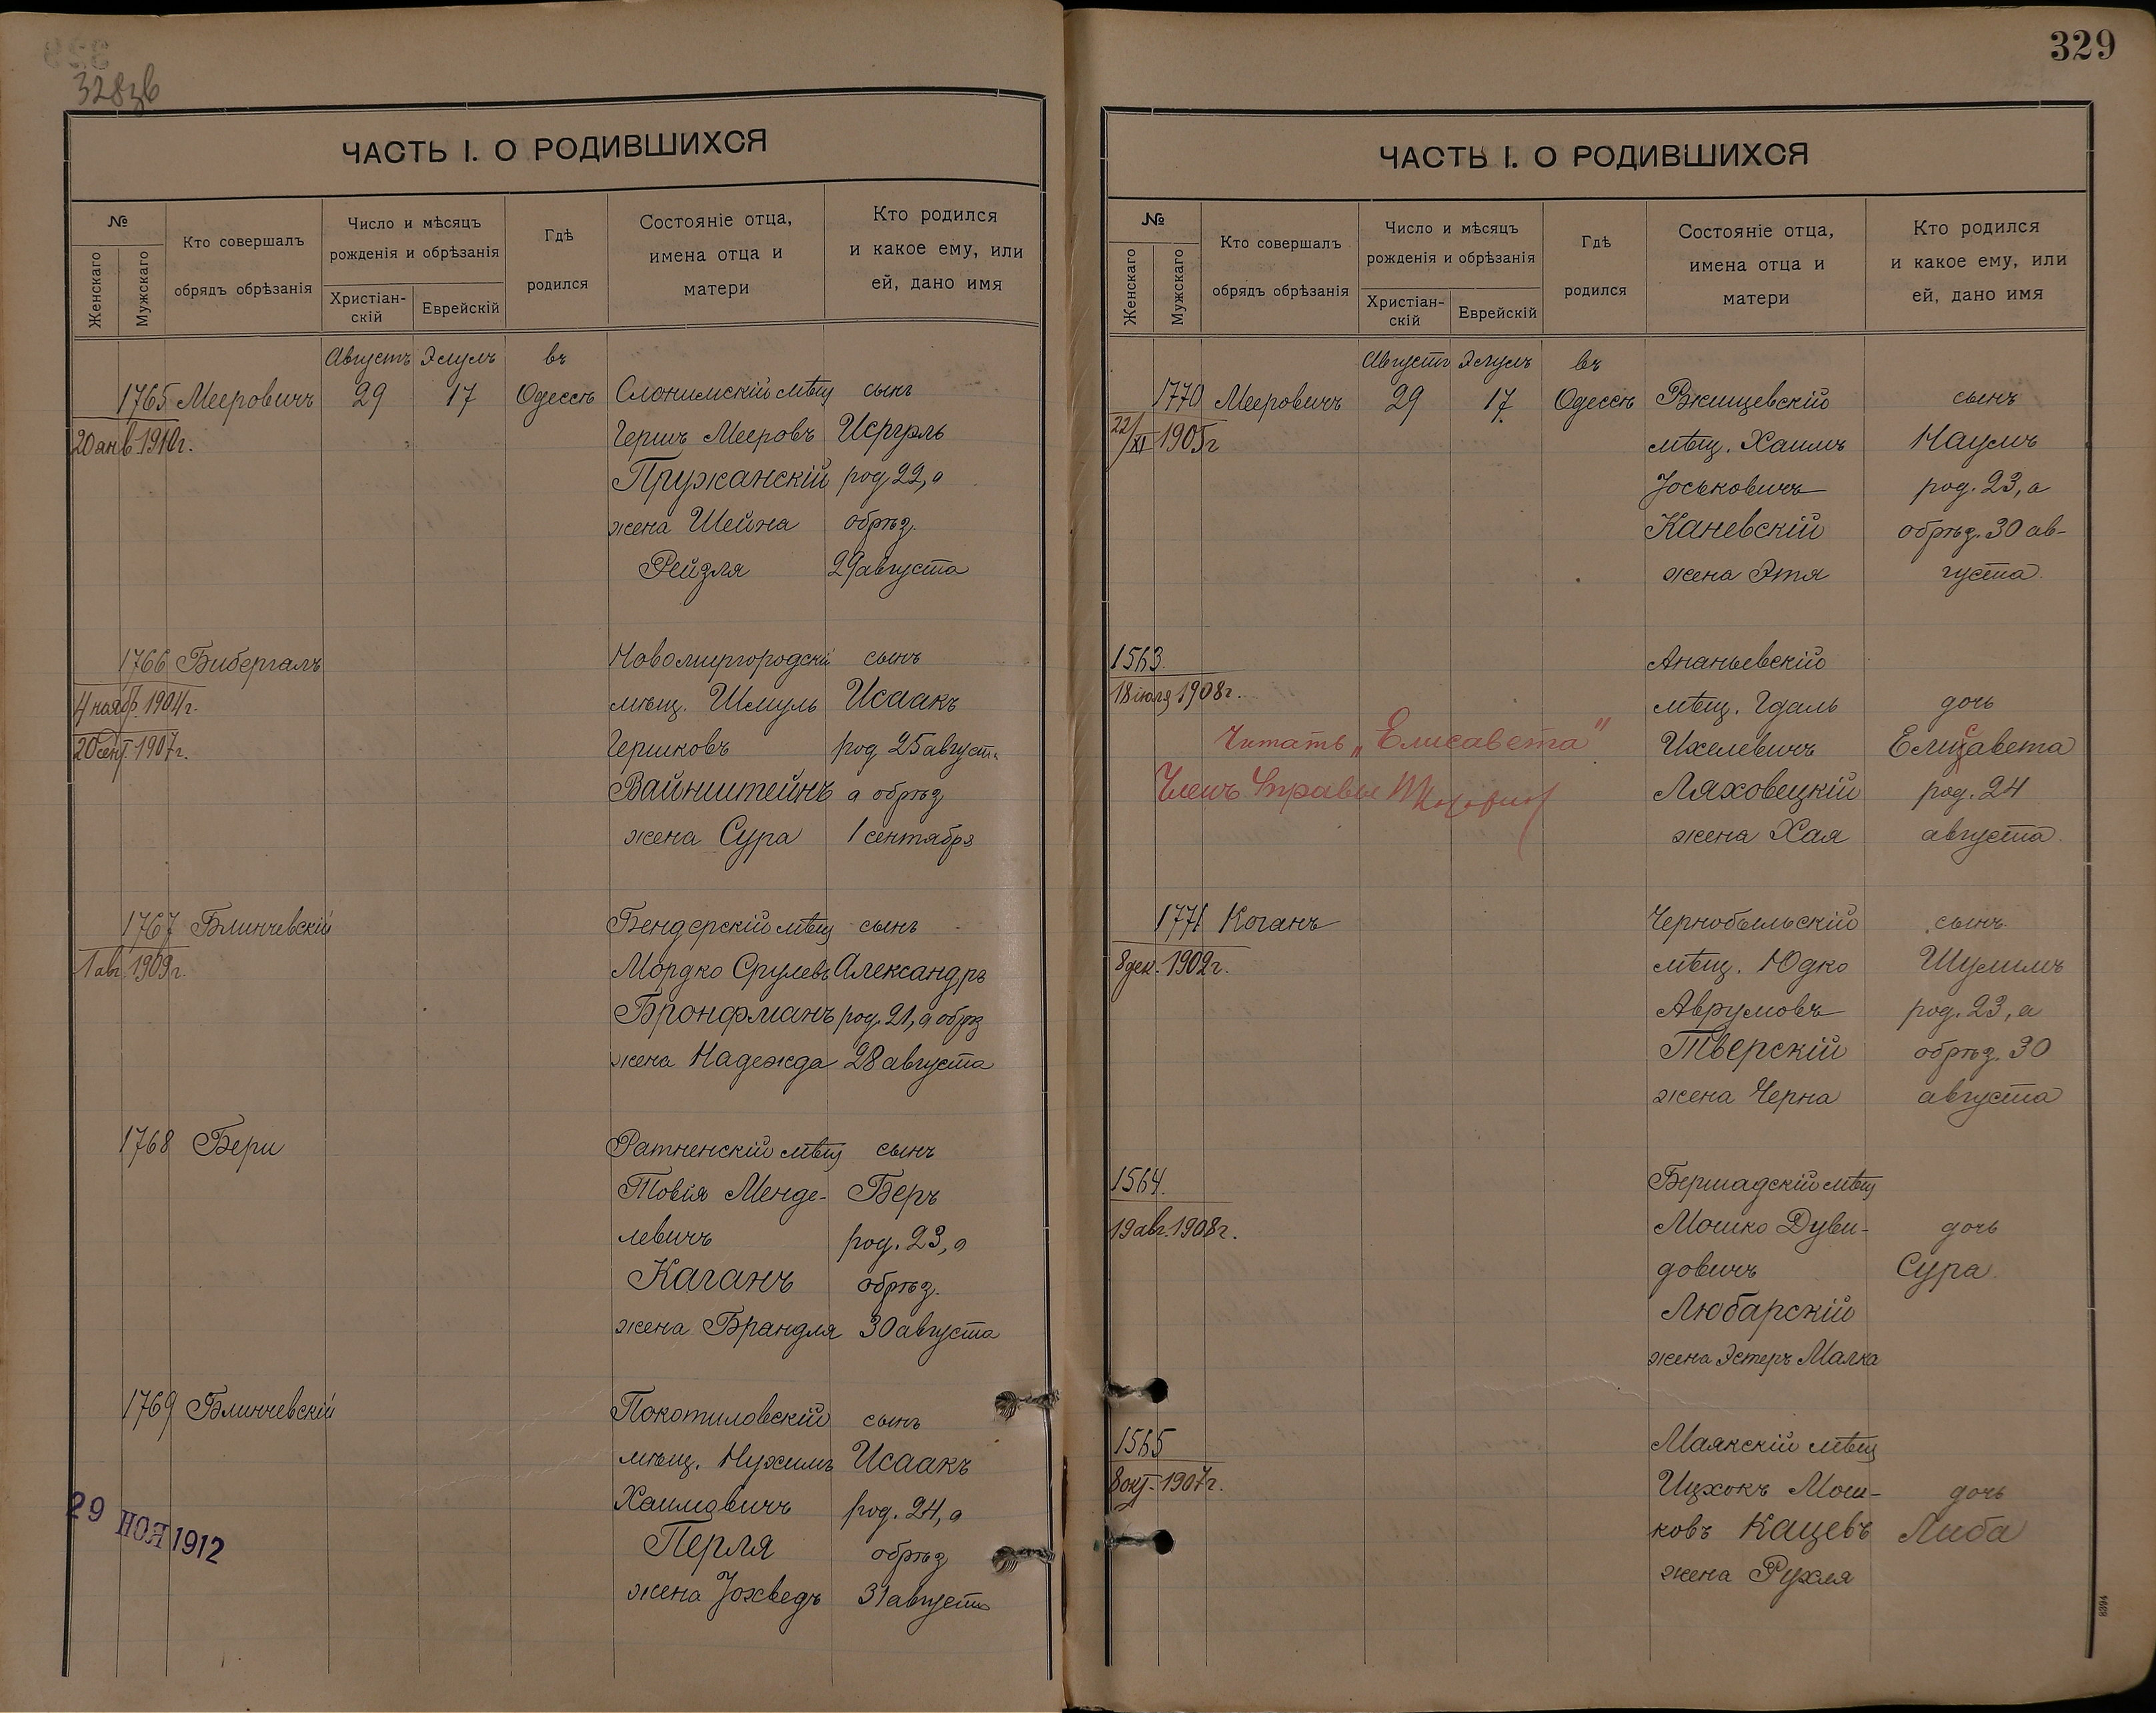 328зв
ЧАСТЬ I. О РОДИВШИХСЯ
№
Женскаго
Мужскаго
Кто совершалъ
обрядъ обрѣзанія
Число и мѣсяцъ
рожденія и обрѣзанія
Христіан-
скій
Еврейскій
Гдѣ
родился
Состояніе отца,
имена отца и
матери
Кто родился
и какое ему, или
ей, дано имя
Августъ Элулъ въ
1765 Мееровичъ 29 17 Одессѣ Слонимскій мѣщ сынъ
20 янв 1910г. Гершъ Мееровъ Исруэль
Пружанскій род 22, а
жена Шейна обрѣз.
Рейзля 29 августа
1766 Бибергалъ Новомиргородскій сынъ
4 нояб. 1904г. мѣщ. Шмуль Исаакъ
20 сент. 1907г. Гершковъ род 25 август.
Вайнштейнъ а обрѣз
жена Сура 1 сентября
1767 Блинчевскій Бендерскій мѣщ сынъ
1 авг. 1909г. Мордко Срулевъ Александръ
Бронфманъ род. 21, а обрѣз
жена Надежда 28 августа
1768 Бери Ратненскій мѣщ сынъ
Товія Менде- Беръ
левичъ род. 23, а
Каганъ обрѣз.
жена Брандля 30 августа
1769 Блинчевскій Покотиловскій сынъ
мѣщ. Нухимъ Исаакъ
Хаимовичъ род. 24, а
29 НОЯ 1912
Перля обрѣз
жена Јохведъ 31 августа
329
ЧАСТЬ I. О РОДИВШИХСЯ
№
Женскаго
Мужскаго
Кто совершалъ
обрядъ обрѣзанія
Число и мѣсяцъ
рожденія и обрѣзанія
Христіан-
скій
Еврейскій
Гдѣ
родился
Состояніе отца,
имена отца и
матери
Кто родился
и какое ему, или
ей, дано имя
Августъ Элулъ въ
1770 Мееровичъ 29 17. Одессѣ Ржищевскій сынъ
22/XI 1905г мѣщ. Хаимъ Наумъ
Јоськовичъ род. 23, а
Каневскій обрѣз. 30 ав-
жена Этя густа
1563. Ананьевскій
18 іюля 1908г. мѣщ. Гдаль дочь
Читать „Елисавета" Ихелевичъ Елисавета
Членъ Управы Ляховецкій род. 24
жена Хая августа
1771 Коганъ Чернобыльскій сынъ
8 дек. 1902г. мѣщ. Юдко Шулимъ
Аврумовъ род. 23, а
Тверскій обрѣз. 30
жена Черна августа
1564. Бершадскій мѣщ
19 авг. 1908г. Мошко Дуви- дочь
довичъ Сура
Любарскій
жена Эстеръ Малка
1565 Маякскій мѣщ
8 окт. 1907г. Ицхокъ Мош- дочь
ковъ Кацевъ Либа
жена Рухля
8394